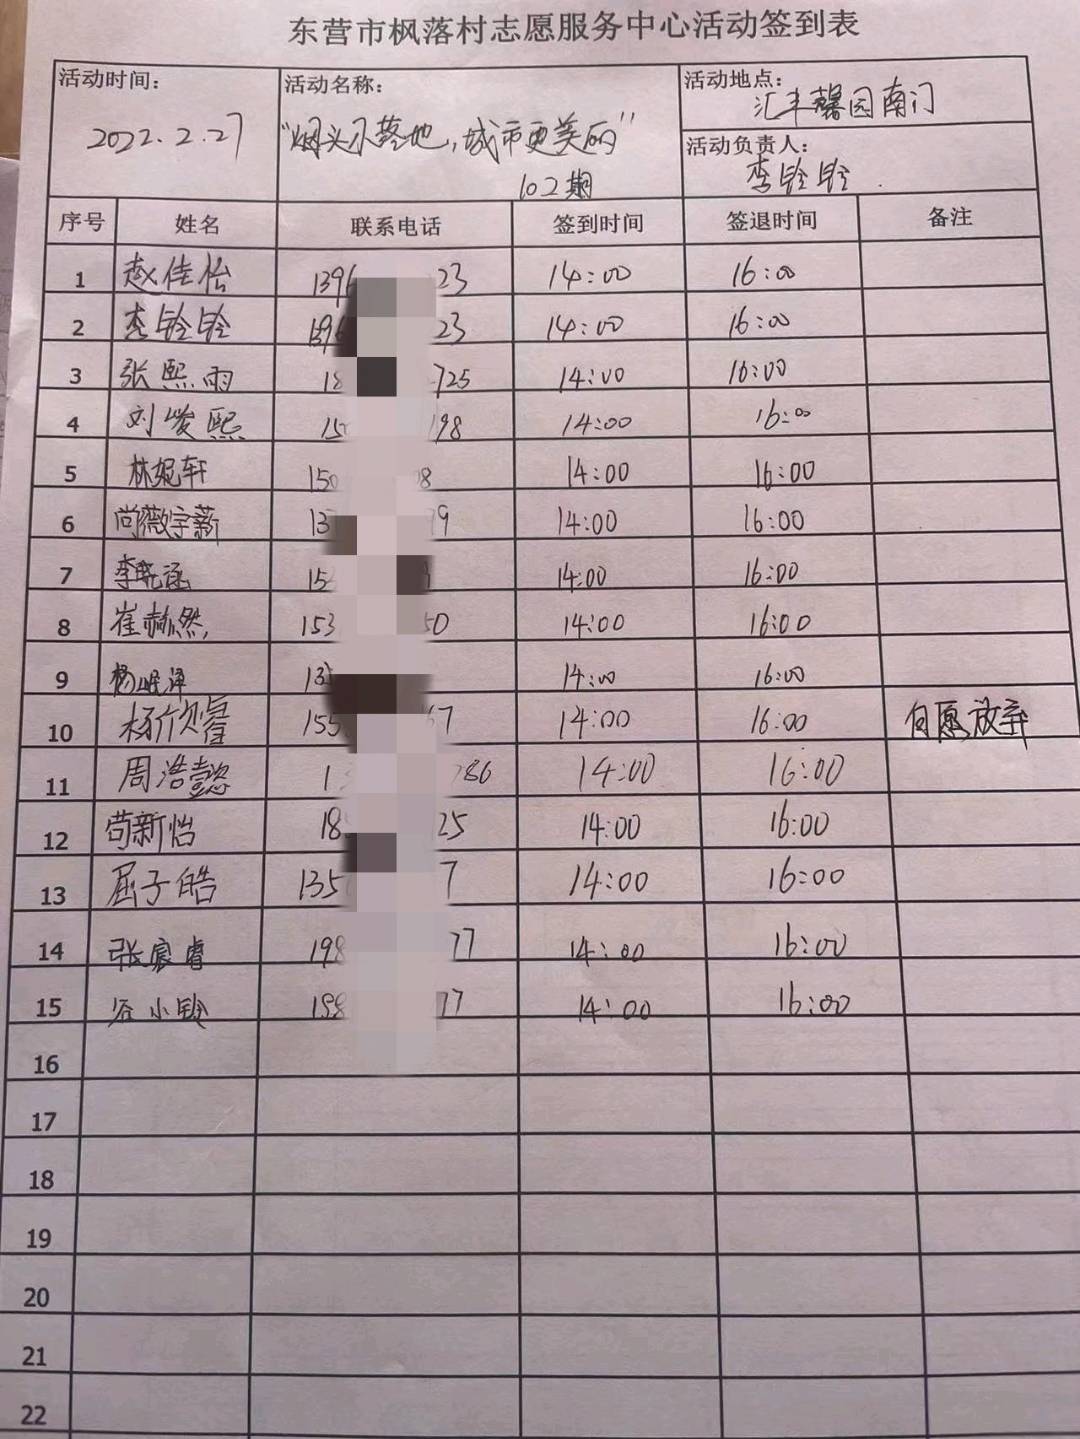 东营市枫落村志愿服务中心活动签到表
活动时间：
2022.2.27
活动名称：
"烟头不落地，城市更美丽"
102期
活动地点：
汇丰馨园南门
活动负责人：
李铃铃
序号 姓名 联系电话 签到时间 签退时间 备注
1 赵佳怡 139 23 14:00 16:00
2 李铃铃 139 23 14:00 16:00
3 张熙雨 18 725 14:00 16:00
4 刘峻熙 15 198 14:00 16:00
5 林妮轩 150 08 14:00 16:00
6 尚薇宇薪 13 9 14:00 16:00
7 李晓涵 15 14:00 16:00
8 崔赫然 153 50 14:00 16:00
9 杨岷泽 13 14:00 16:00
10 杨欣睿 155 67 14:00 16:00 自愿放弃
11 周浩懿 1 786 14:00 16:00
12 苟新怡 18 25 14:00 16:00
13 屈子皓 135 7 14:00 16:00
14 张宸睿 198 77 14:00 16:00
15 谷小铃 198 77 14:00 16:00
16
17
18
19
20
21
22